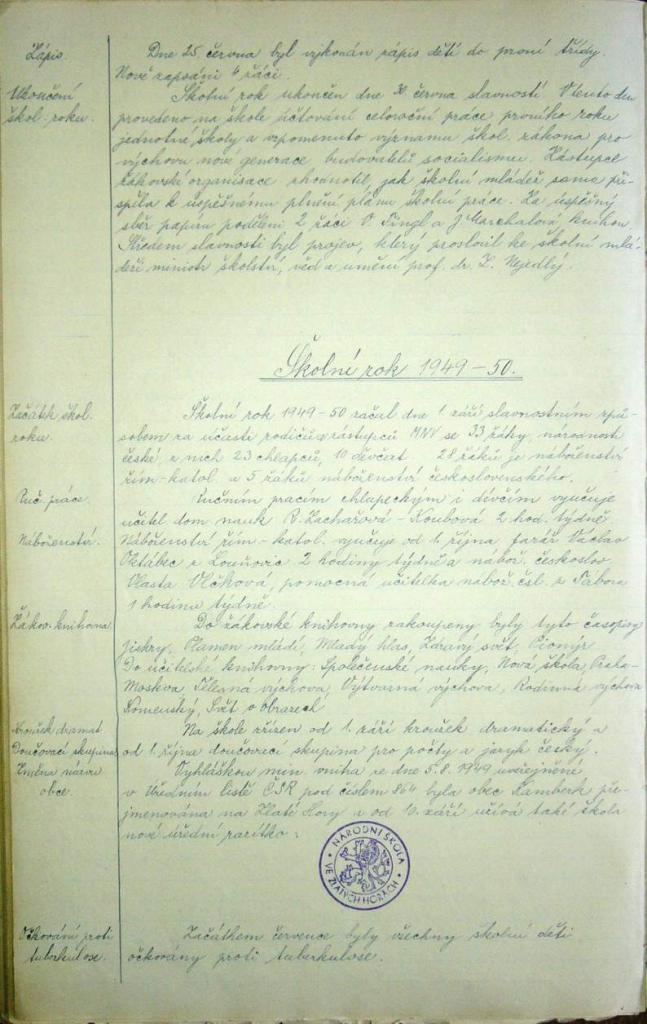 Zápis.
Dne 25. června byl vykonán zápis dětí do první třídy.
Nově zapsáni 4 žáci.
Ukončení
škol. roku.
Školní rok ukončen dne 30 června slavností. V tento den
provedeno na škole účtování celoroční práce prvního roku
jednotné školy a vzpomenuto významu škol. zákona pro
výchovu nové generace budovatelů socialismu. Zástupce
žákovské organisace zhodnotil, jak školní mládež sama při-
spěla k úspěšnému plnění plánu školní práce. Za úspěšný
sběr papíru poděleni 2 žáci O. Fingl a J. Marchalová knihou.
Středem slavnosti byl projev, který proslovil ke školní mlá-
deži ministr školství, věd a umění prof. dr. Z. Nejedlý.
Školní rok 1949-50.
Začátek škol.
roku.
Školní rok 1949-50 začal dne 1 září slavnostním způ-
sobem za účasti rodičů a zástupců MNV se 33 žáky, národnosti
české, z nich 23 chlapců, 10 děvčat. 28 žáků je náboženství
řím-katol. a 5 žáků náboženství československého.
Ruč. práce.
Ručním pracím chlapeckým i dívčím vyučuje
učitel. dom. nauk R. Zachařová-Koubová 2 hod. týdně
Náboženství.
Náboženství řím-katol. vyučuje od 1. října farář Václav
Oktábec z Louňovic 2 hodiny týdně a nábož. českoslov.
Vlasta Vlčková, pomocná učitelka nábož. čsl. z Tábora
1 hodinu týdně.
Žákov. knihovna
Do žákovské knihovny zakoupeny byly tyto časopisy
Jiskry, Plamen mládí, Mladý hlas, Zdravý svět, Pionýr.
Do učitelské knihovny: Společenské nauky, Nová škola, Praha-
Moskva, Tělesná výchova, Výtvarná výchova, Rodinná výchova
Komenský, Svět v obrazech
Kroužek dramat.
Doučovací skupina
Na škole zřízen od 1. září kroužek dramatický a
od 1. října doučovací skupina pro počty a jazyk český.
Změna názvu
obce.
Vyhláškou min. vnitra ze dne 5.8.1949 uveřejněné
v Úředním listě ČSR pod číslem 864 byla obec Kamberk pře-
jmenována na Zlaté Hory a od 10. září užívá také škola
nové úřední razítko:
NÁRODNÍ ŠKOLA
VE ZLATÝCH HORÁCH
Očkování proti
tuberkulose.
Začátkem července byly všechny školní děti
očkovány proti tuberkulose.